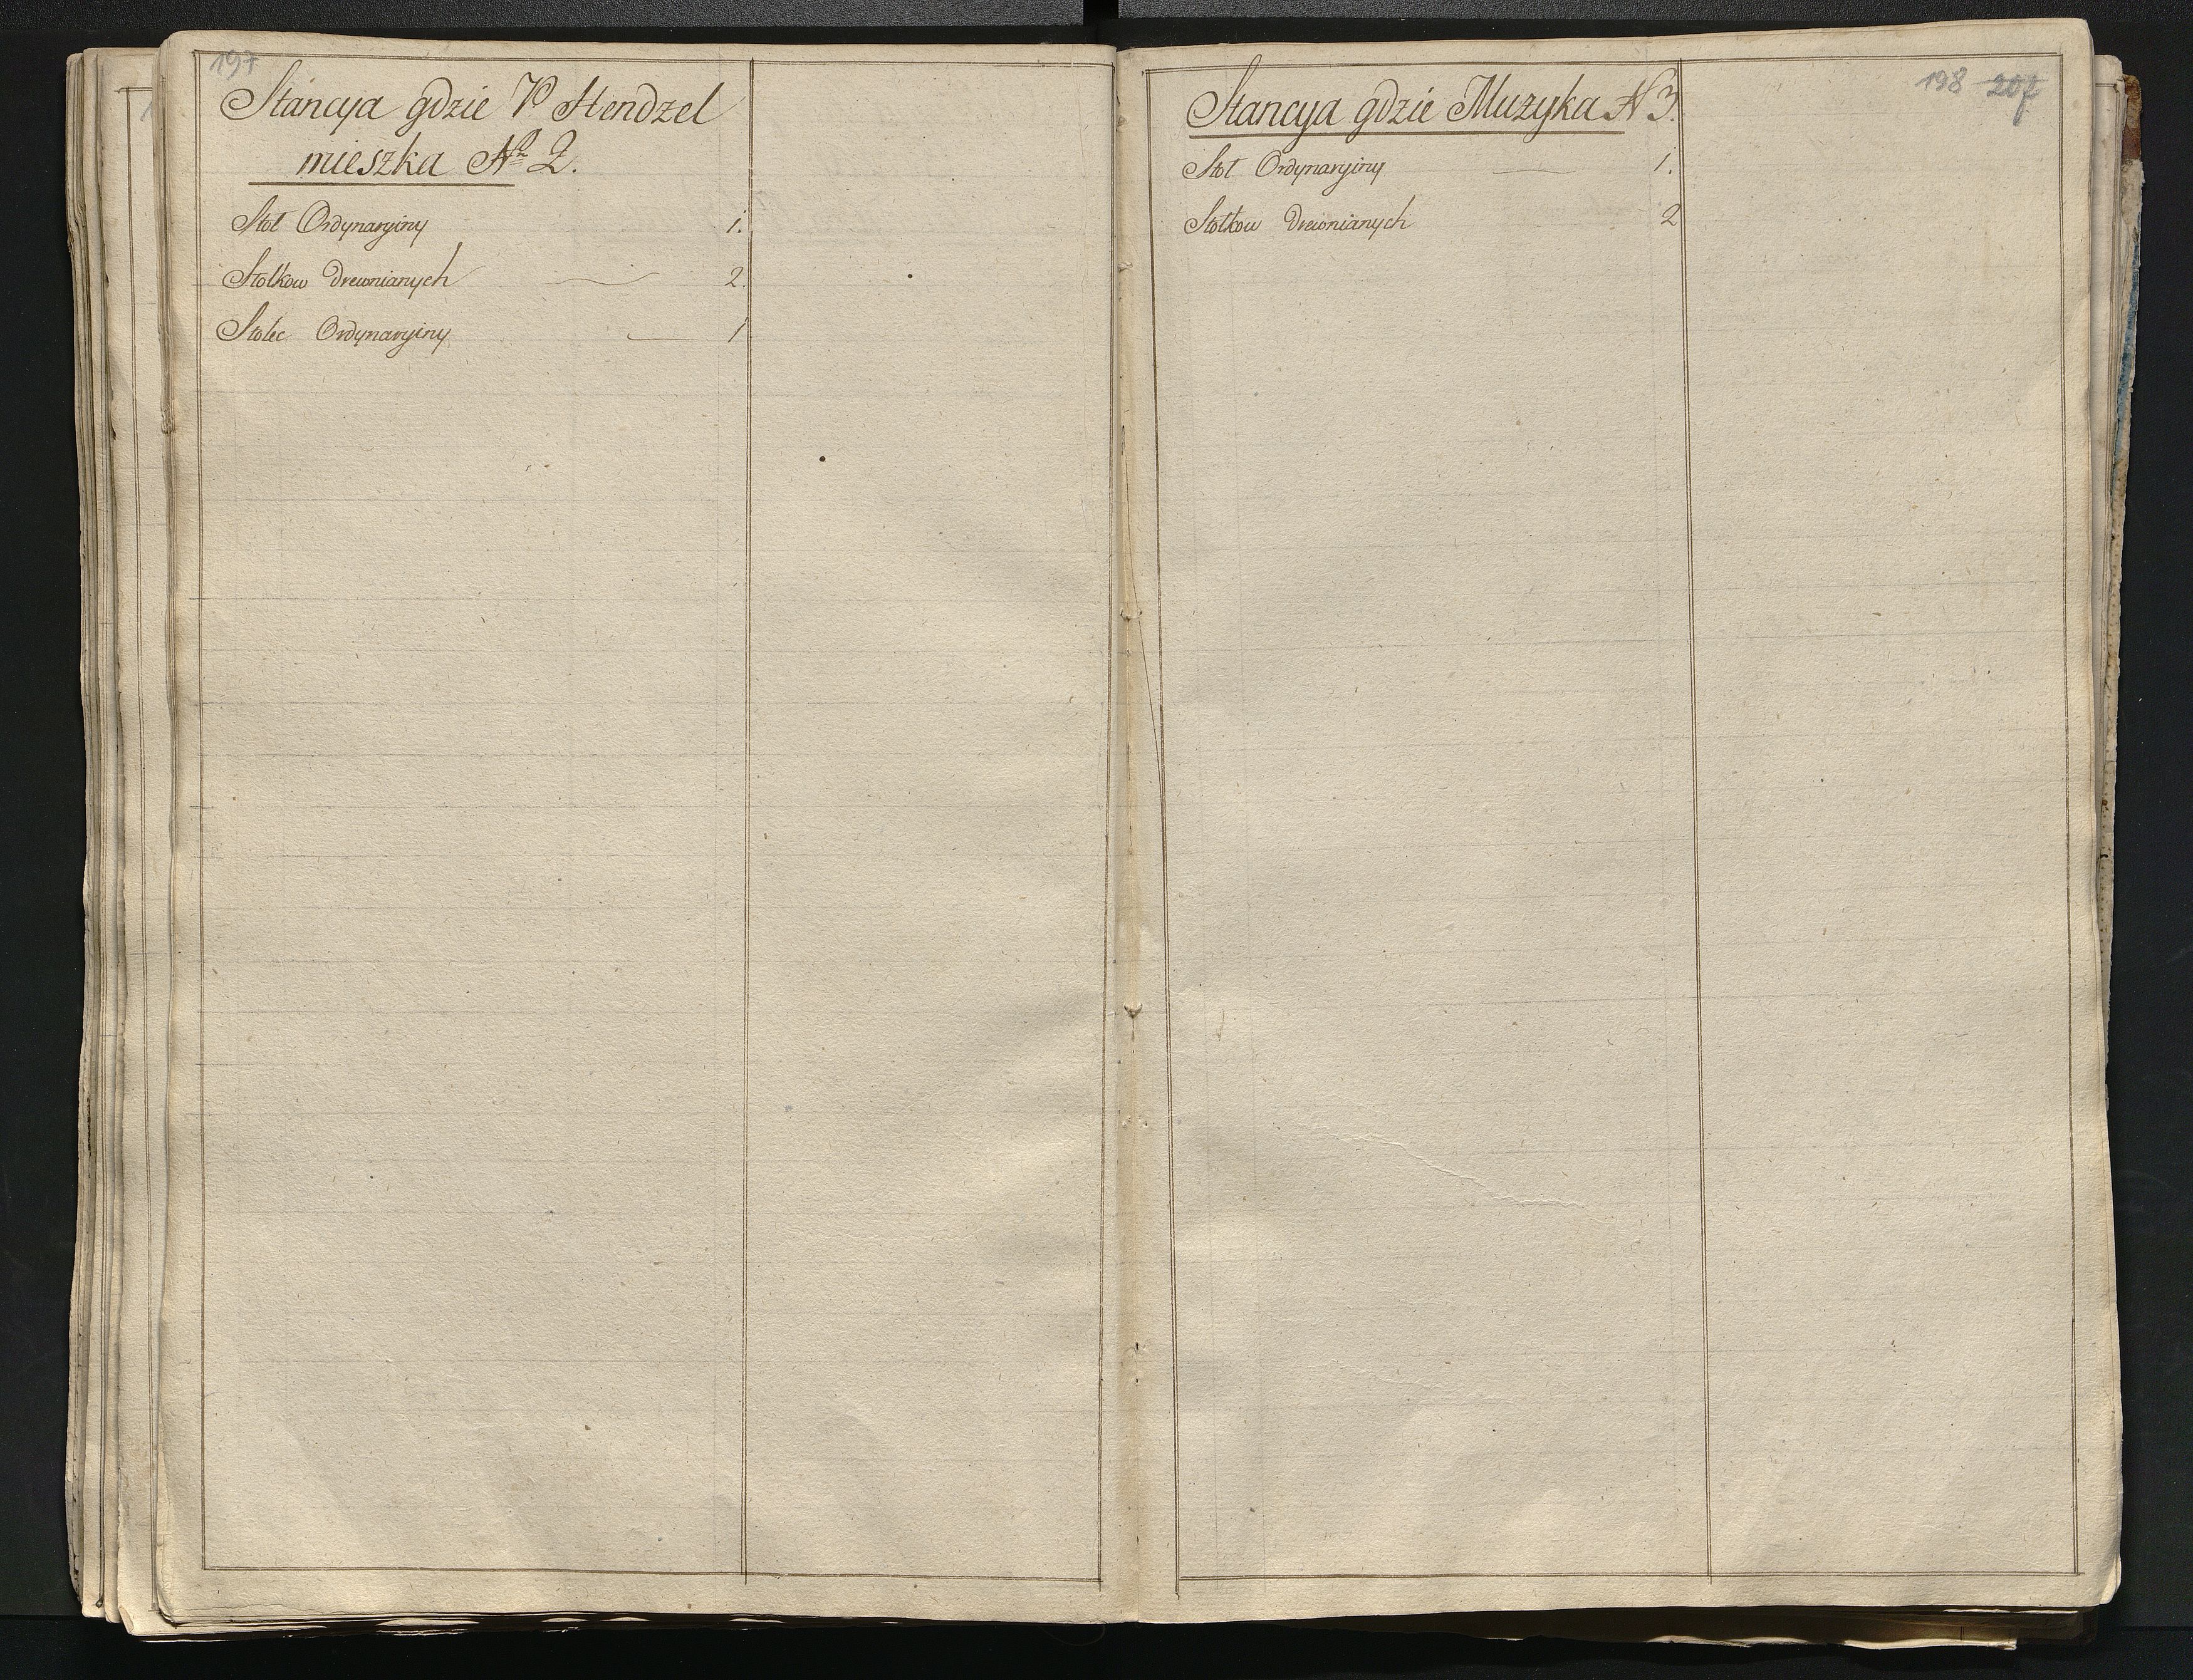 197
Stancya gdzie P Hendzel
mieszka No 2.
Stoł Ordynaryiny 1.
Stołkow drewnianych 2.
Stolec Ordynaryiny 1
198 207
Stancya gdzie Muzyka N 3.
Stoł Ordynaryiny 1.
Stołkow drewnianych 2